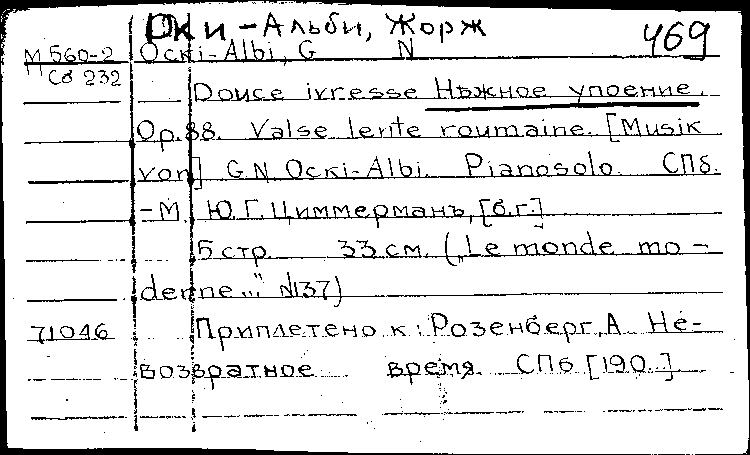 Оки-Альби, Жорж
469
М 560-2
Ocki-Albi, G N
Сб 232
Douce ivresse Нѣжное упоение.
Op. 88. Valse lente roumaine. [Musik
von] G N Ocki-Albi. Pianosolo. СПб.
-М. Ю.Г. Циммерманъ, [б.г.]
5 стр. 33 см. („Le monde mo-
derne..." N137)
71046
Приплетено к: Розенберг, А Не-
возвратное время. СПб [190..].